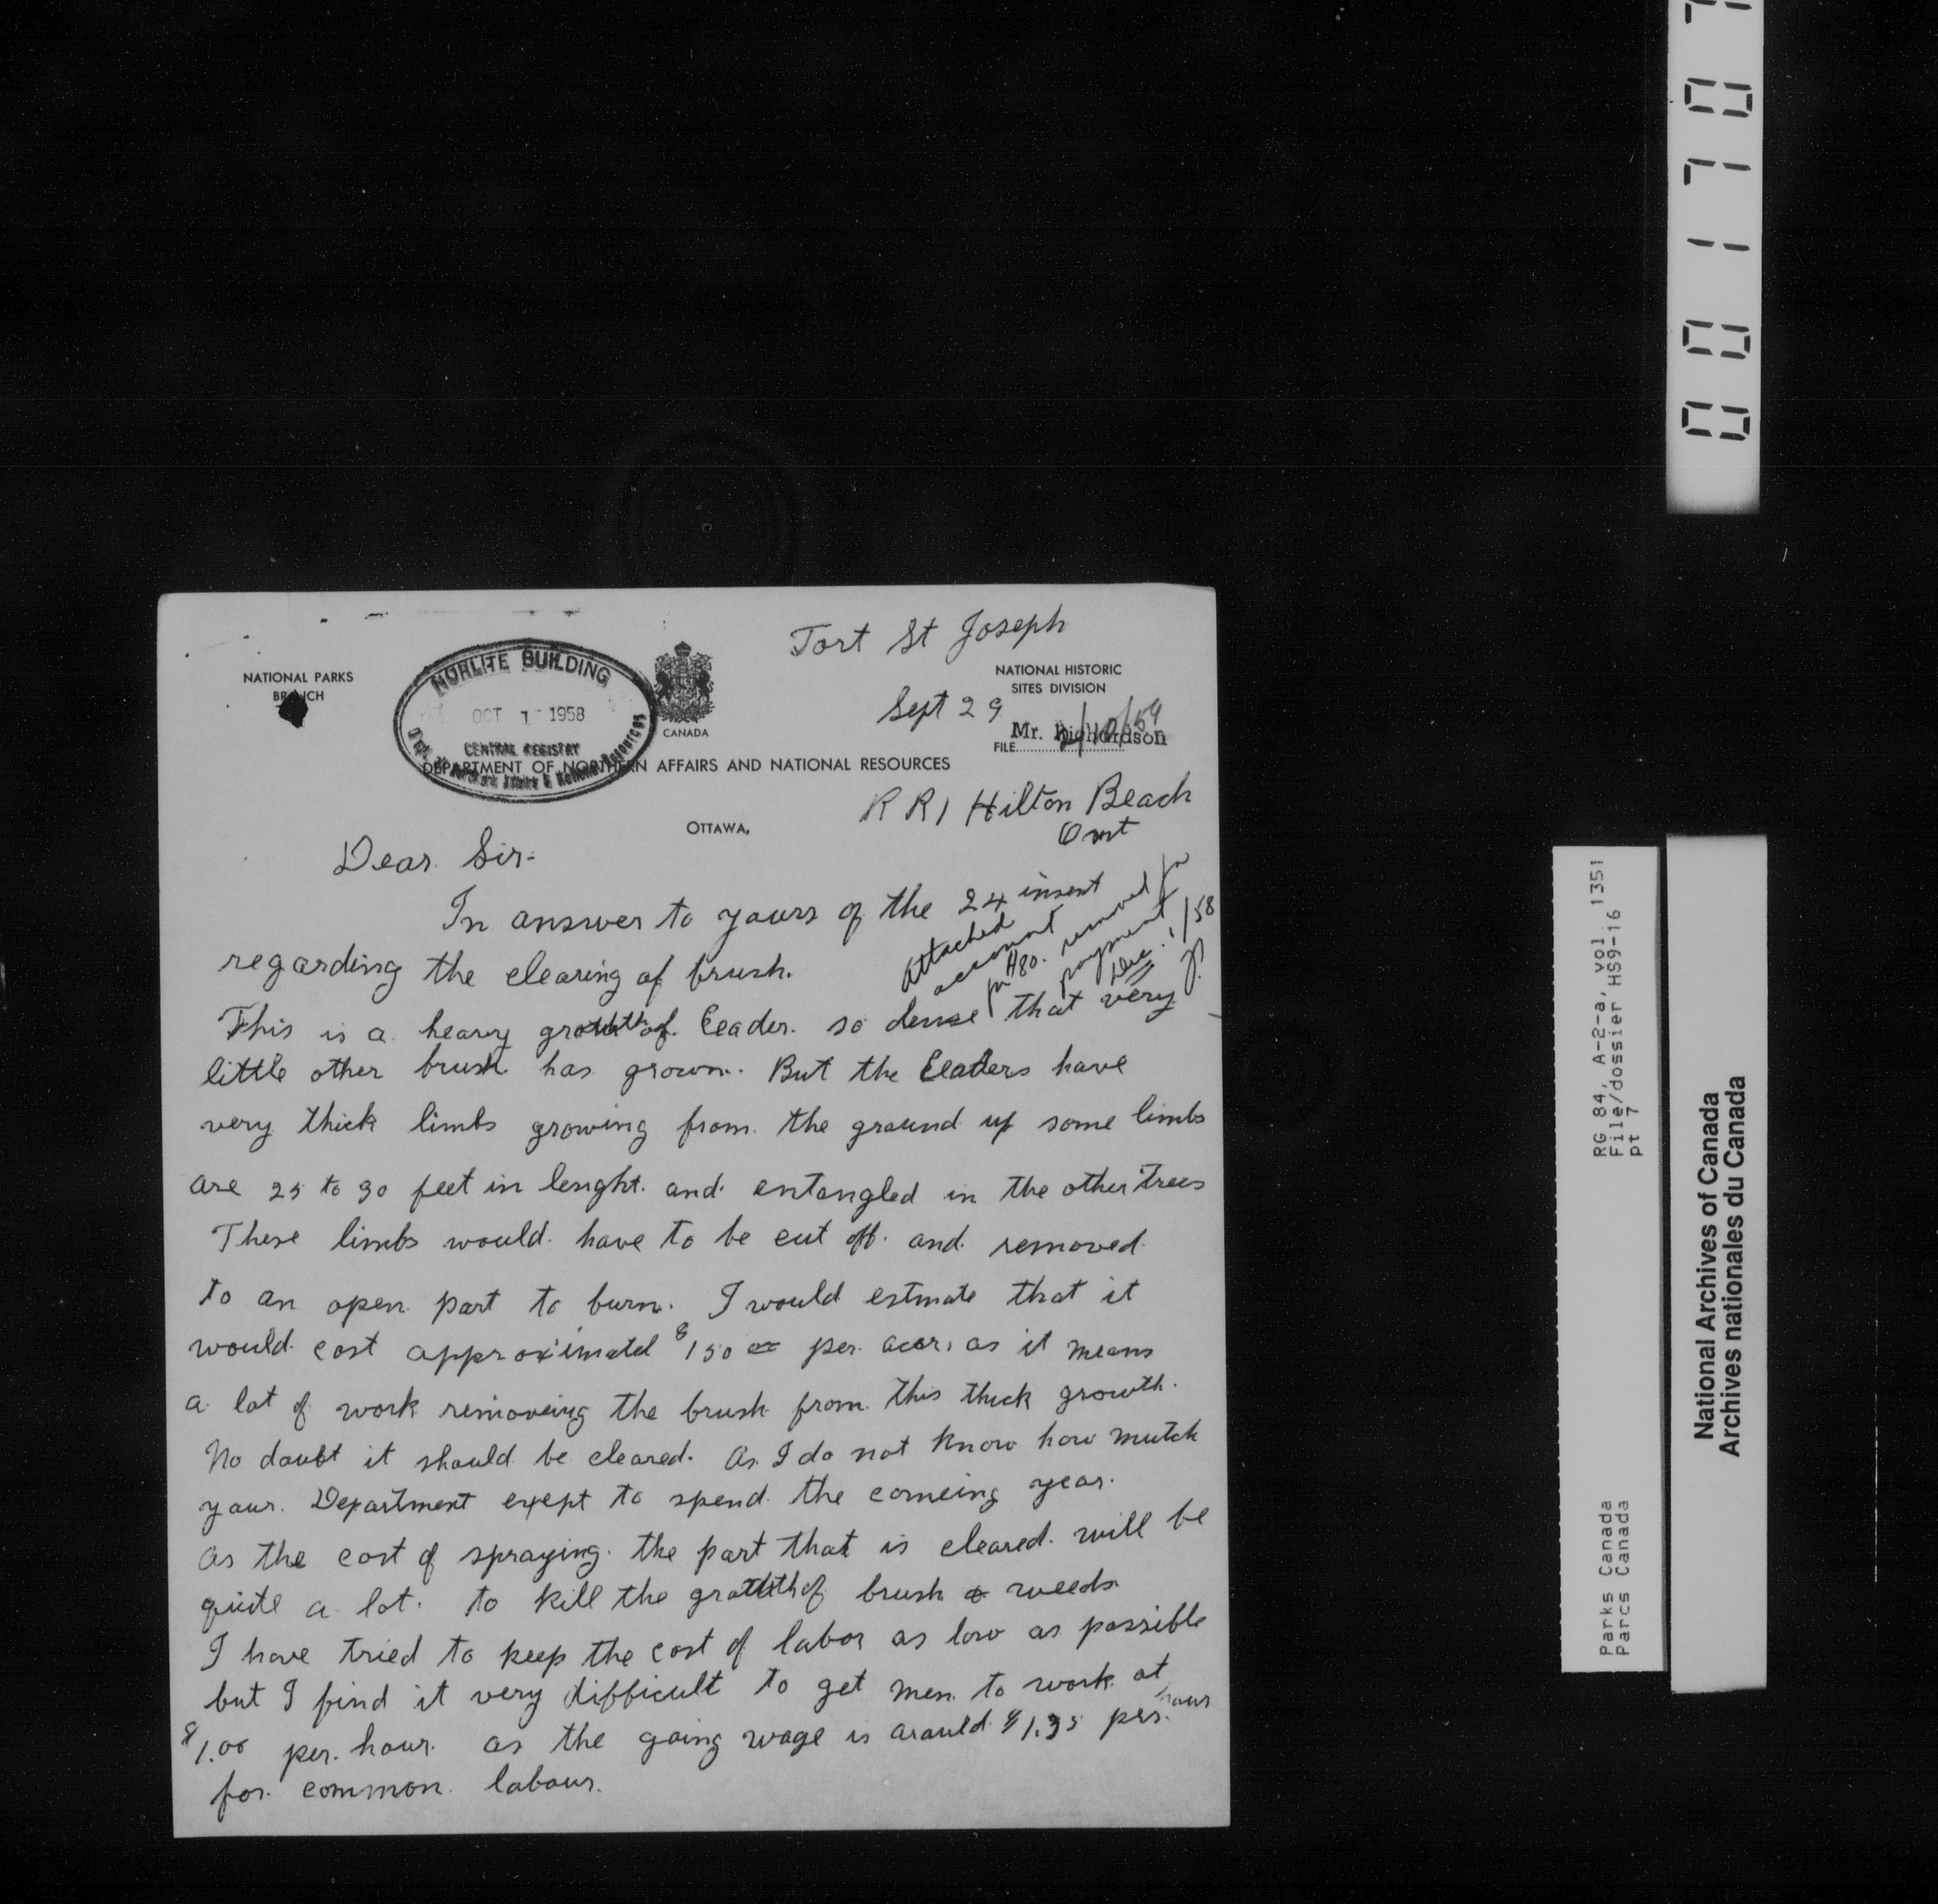 Fort St Joseph
NATIONAL PARKS
BRANCH
NORLITE BUILDING
OCT 1 1958
CENTRAL REGISTRY
Dept. of Northern Affairs & National Resources
CANADA
NATIONAL HISTORIC
SITES DIVISION
Sept 29
Mr. Richardson
FILE
DEPARTMENT OF NORTHERN AFFAIRS AND NATIONAL RESOURCES
R R 1 Hilton Beach
Ont
OTTAWA,
Dear Sir-
In answer to yours of the 24 insent
regarding the clearing of brush.
Attached
account
for $80. removed for
payment
Dec. 1/58
This is a heavy growth of Ceader. so dense that very
little other brush has grown. But the Ceaders have
very thick limbs growing from the ground up some limbs
are 25 to 30 feet in lenght. and entangled in the other trees
These limbs would have to be cut off. and removed
to an open part to burn. I would estmate that it
would cost approximated $150 00 per accr, as it means
a lot of work removeing the brush from this thick growth.
No doubt it should be cleared. As I do not know how mutch
your Department exept to spend the comeing year.
as the cost of spraying. the part that is cleared. will be
quite a lot. to kill the growth of brush & weeds
I have tried to keep the cost of labor as low as possible
but I find it very difficult to get men to work at
$1.00 per. hour. as the going wage is arould $1.35 per. hour
for common labour.
0 0 1 7 0 7
RG 84, A-2-a, vol. 1351
File/dossier HS9-16
pt 7
Parks Canada
Parcs Canada
National Archives of Canada
Archives nationales du Canada